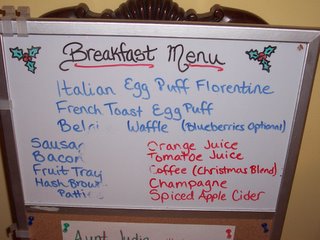 Breakfast Menu
Italian Egg Puff Florentine
French Toast Egg Puff
Waffle (Blueberries Optional)
Sausag
Orange Juice
Bacon
Tomatoe Juice
Fruit Tray
Coffee (Christmas Blend)
Hash Brown
Champagne
Patti
Spiced Apple Cider
Aunt